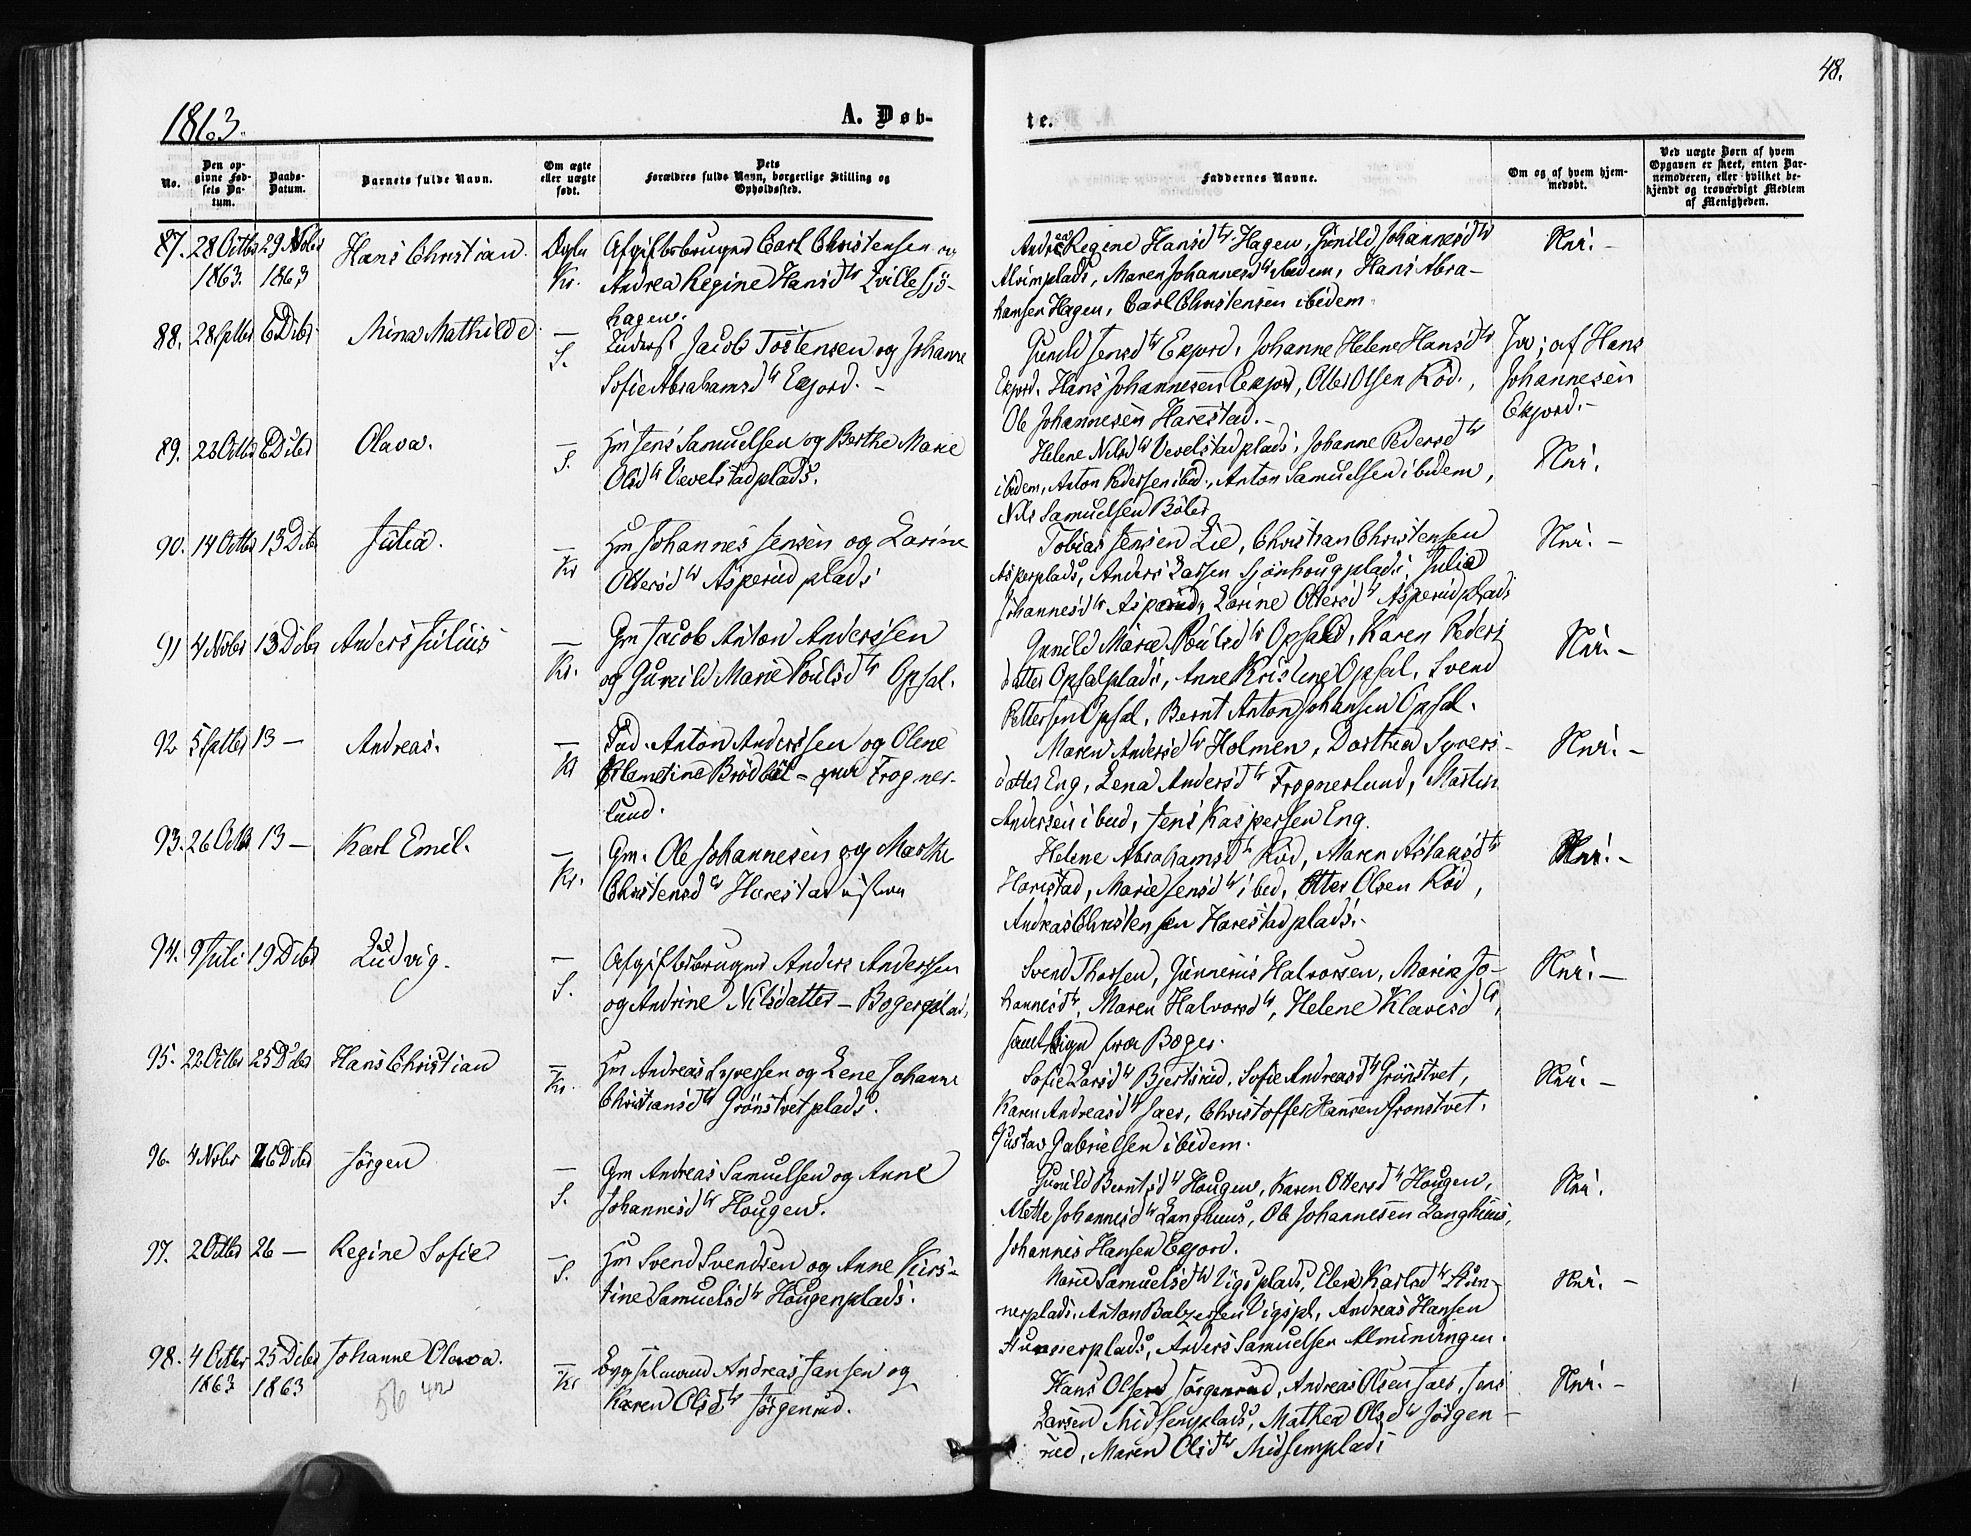 48.
1863.
A. Døb-
te.
No.
Den op-
givne Fød-
sels Da-
tum.
Daabs-
Datum.
Barnets fulde Navn.
Om ægte
eller uægte
født.
Dets
Forældres fulde Navn, borgerlige Stilling og
Opholdssted.
Faddernes Navne.
Om og af hvem hjem-
medøbt.
Ved uægte Børn af hvem
Opgaven er skeet, enten Bar-
nemoderen, eller hvilket be-
kjendt og troværdigt Medlem
af Menigheden.
87. 28 Octbr 29 Nvbr Hans Christian. Ægte Afgiftsbruger Carl Christensen og
1863. 1863 Kr. Andrea Regine Hansdtr Lillesjö-
hagen.
Andrea Regine Hansdtr Hagen, Gunild Johannesdtr
Alvimplads, Maren Johannesdtr ibidem, Hans Abra-
hamsen Hagen, Carl Christensen ibidem.
Knr. -
88. 28 Sptbr 6 Dcbr Mina Mathilde. — Jacob Tostensen og Johanne
S. Sofie Abrahamsdtr Exjord. -
Gunild Jensdtr Exjord, Johanne Helene Hansdtr
Exjord, Hans Johannesen Exjord, Otter Olsen Röd,
Ole Johannesen Harestad. -
Ja; af Hans
Johannesen
Exjord. -
89. 23 Octbr 6 Dcbr Olava. — Hm Jens Samuelsen og Berthe Marie
S. Olsdtr Vevelstadplads.
Helene Nilsdtr Vevelstadplads, Johanne Pedersdtr
ibidem, Anton Pedersen ibid., Anton Samuelsen ibidem,
Nils Samuelsen Böler
Knr.
90. 14 Octbr 13 Dcbr Julia. — Hm Johannes Jensen og Larine
Kr Ottersdtr Asperud plads
Tobias Jensen Lie, Christian Christensen
Asperplads, Anders Larsen Sjönhougplads, Julia
Johannesdtr Asperud, Larine Ottersdtr Asperudplads
Knr. -
91 4 Nvbr 13 Dcbr Anders Julius — Gm Jacob Anton Anderssen
Kr. og Gunild Marie Poulsdtr Opsal.
Gunild Marie Poulsdtr Opsal, Karen Peders
datter Opsalplads, Anne Kristine Opsal, Svend
Pettersen Opsal, Bernt Anton Johansen Opsal.
Knr. -
92 5 Sptbr 13 — Andreas. — Anton Anderssen og Olene
Kr Klemetine Brödböl - fra Frogner-
lund.
Maren Andersdtr Holmen, Dorthea Syvers-
datter Eng, Lena Andersdtr Frognerlund, Martin
Andersen ibid, Jens Kaspersen Eng.
Knr. -
93. 26 Octbr 13 — Karl Emil. — Gm. Ole Johannesen og Marthe
Kr. Christensdtr Harestad
Helene Abrahamsdtr Röd, Maren Aslaksdtr
Harestad, Marie Jensdtr ibid, Otter Olsen Röd,
Andreas Christensen Harestadplads. -
Knr. -
94. 9 Juli 19 Dcbr Ludvig. — Afgiftsbruger Anders Anderssen
S. og Andrine Nilsdatter - Bogerplads,
Svend Thorsen, Gunnerius Halvorsen, Maria Jo-
hannesdtr, Maren Halvorsdtr, Helene Klavesdtr,
fra Boger.
Knr. -
95. 22 Octbr 25 Dcbr Hans Christian — Hm Andreas Syversen og Lene Johanne
Kr. Christiansdtr Grönstvetplads.
Sofie Larsdtr Bjertsrud, Sofie Andreasdtr Grönstvet,
Karen Andreasdtr Faer, Christoffer Hansen Gronstvet,
Gustav Gabrielsen ibidem.
Knr. -
96. 4 Nvbr 26 Dcbr Jörgen — Gm Andreas Samuelsen og Anne
S. Johannesdtr Hougen.
Gunild Berntsdtr Hougen, Karen Ottersdtr Hougen,
Mette Johannesdtr Langhuus, Ole Johannesen Langhuus,
Johannes Hansen Exjord.
Knr.
97. 2 Octbr 26 — Regine Sofie — Hm Svend Svendsen og Anne Kirs-
S. tine Samuelsdtr Hougenplads.
Marie Samuelsdtr Vigsplads, Elen Karlsdtr Hun-
nerplads, Anton Balzersen Vigspl, Andreas Hansen
Hunnerplads, Anders Samuelsen Almindingen.
Knr. -
98. 4 Octbr 25 Dcbr Johanne Olava. — Bygselmand Andreas Jansen og
1863 1863 Kr Karen Olsdtr Jörgenrud.
56 42
Hans Olsen Jörgenrud, Andreas Olsen Faer, Jens
Larsen Midsemplads, Mathea Olsdtr Jörgen-
rud, Maren Olsdtr Midsemplads
Knr. -